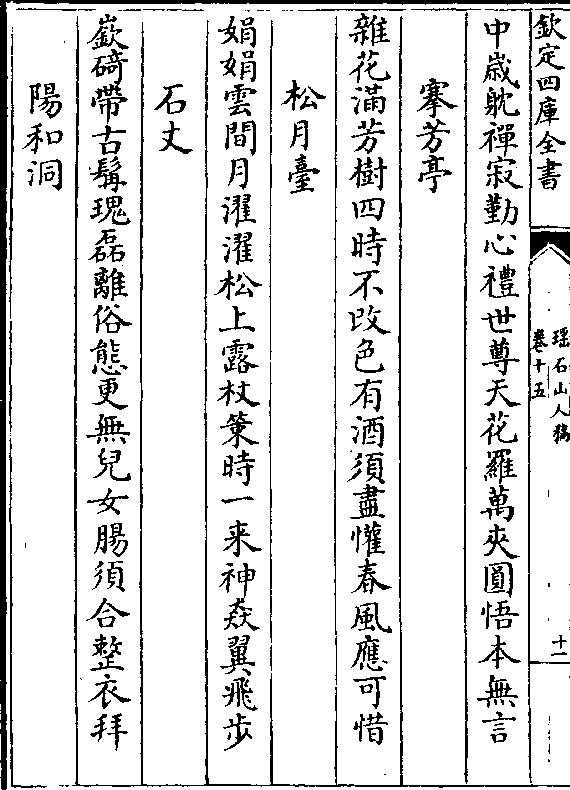 欽定四庫全書
瑶石山人稿
卷十五
十二
中歲躭禪寂勤心禮世尊天花羅萬夾圓悟本無言
搴芳亭
雜花滿芳樹四時不改色有酒須盡懽春風應可惜
松月臺
娟娟雲間月濯濯松上露杖策時一来神猋翼飛步
石丈
嶔碕帶古鬜瑰磊離俗態更無兒女腸須合整衣拜
陽和洞